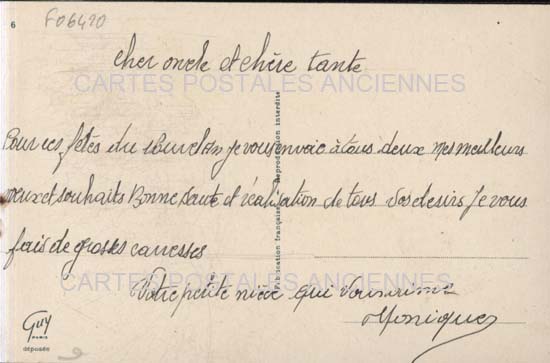 6
F06420
cher oncle et chère tante
CARTES POSTALES ANCIENNES
Pour ces fêtes du nouvel an je vous envoie à tous deux mes meilleurs
vœux et souhaits Bonne Sante et réalisation de tous vos desirs Je vous
fais de grosses caresses
CARTES POSTALES ANCIENNES
Votre petite nièce qui vous aime
Monique
Publication française Reproduction interdite
Guy
PARIS
déposée